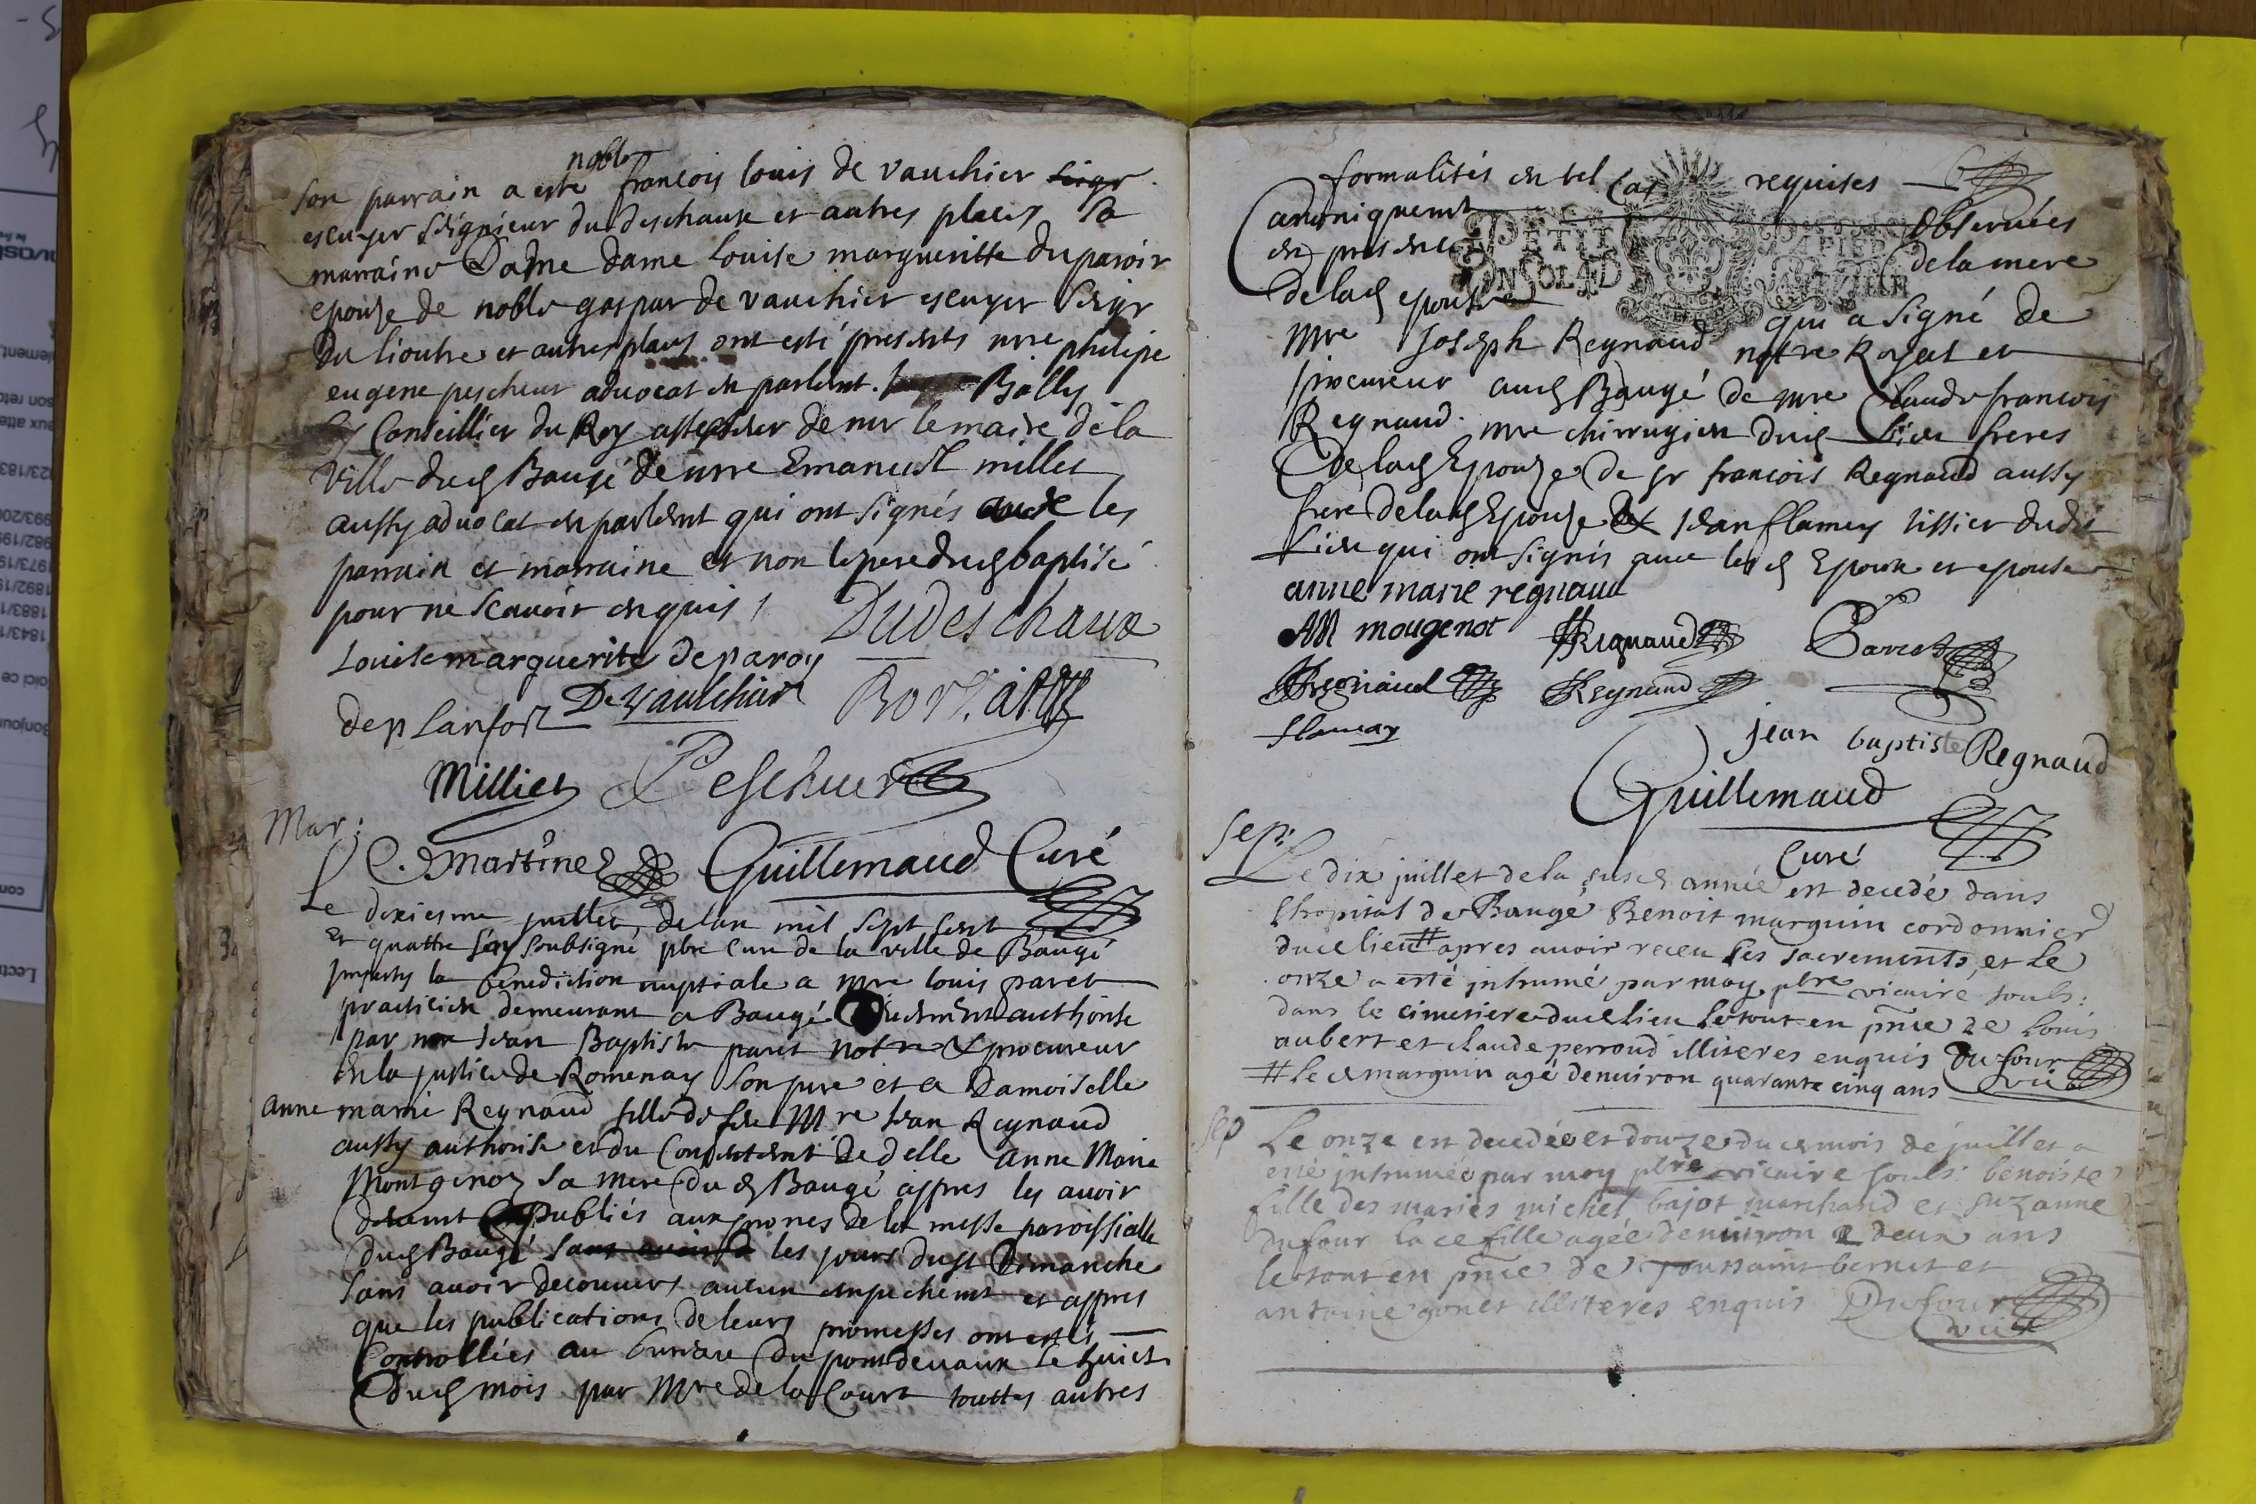 noble
son parrain a esté françois louis de vauchier seigr
escuyer seigneur du deschaux et autres places sa
marraine Dame dame Louise margueritte duparoir
epouze de noble gaspar de vauchier escuyer Seigr
du lioutre et autres places ont esté presents mre philipe
eugene pescheur advocat en parlemt. Bolly
Conseillier du Roy assesseur de mr le maire de la
ville dud Baugé de mre Emanuel millet
aussy advocat en parlemt qui ont signés avec les
parrain et marraine et non le pere dud baptisé
pour ne scavoir enquis /
Dudeschaux
Louise marguerite deparoy
de planfost
De vaulchier
Milliet
Pescheur
Mar:
C. Martine
Guillemaud Curé
Le dixiesme juillet, de lan mil sept cent
et quattre j'ay soubsigné pbre cure de la ville de Baugé
imparty la benediction nuptiale a mre louis paret
practicien demeurant a Baugé authorisé
par mre Jean Baptiste paret notre & procureur
en la justice de Romenay son pere et a Damoiselle
anne marie Regnaud fille de feu Mre Jean Regnaud
aussy authorisé et du Consentemt de delle Anne Marie
Montgenoz sa mere dud Baugé appres les avoir
dhuemt publiés aux prones de la messe paroissialle
dud Baugé sans avoir d les jours dust Dimanche
sans avoir decouvert aucun empechemt et appres
que les publications de leurs promesses ont estés
Controllées au bureau du pontdevaux le huict
dud mois par Mre de la Court touttes autres
formalités en tel cas requises
Canoniquemt Observées
en presence de la mere
de lad epouse
PETIT PAPIER
qui a signé de
mre Joseph Regnaud notre Royal et
procureur aud Baugé de mre Claude francois
Regnaud mre chirrugien dud Lieu freres
de lad Epouze de sr francois Regnaud aussy
frere de lad Epouze & Jean flamey tissier dudit
Lieu qui ont signés avec lesd Epoux et epouse
anne marie regnaud
AM mougenot
Regnaud
Paret
Regnaud
Regnaud
flamay
jean baptiste Regnaud
Guillemaud
Curé
Sep:
Le dix juillet de la susd année est decedé dans
Lhopital de Baugé Benoit marguin cordonnier
dud lieu # apres avoir receu les sacrements et le
onze a esté inhumé par moy pbre vicaire souls:
dans le cimetiere dud lieu le tout en pnce de Louis
aubert et claude perroud illiteres enquis Dufour
vic
# le d marguin agé denviron quarante cinq ans
Sep
Le onze est decedée et douze dud mois de juillet a
esté inhumée par moy pbre vicaire souls: benoiste
fille des mariés michel bajot marchand et suzanne
dufour lad fille agée denviron deux ans
le tout en pnce de toussaint bernet et
antoine gonet illiteres enquis Dufour
vic